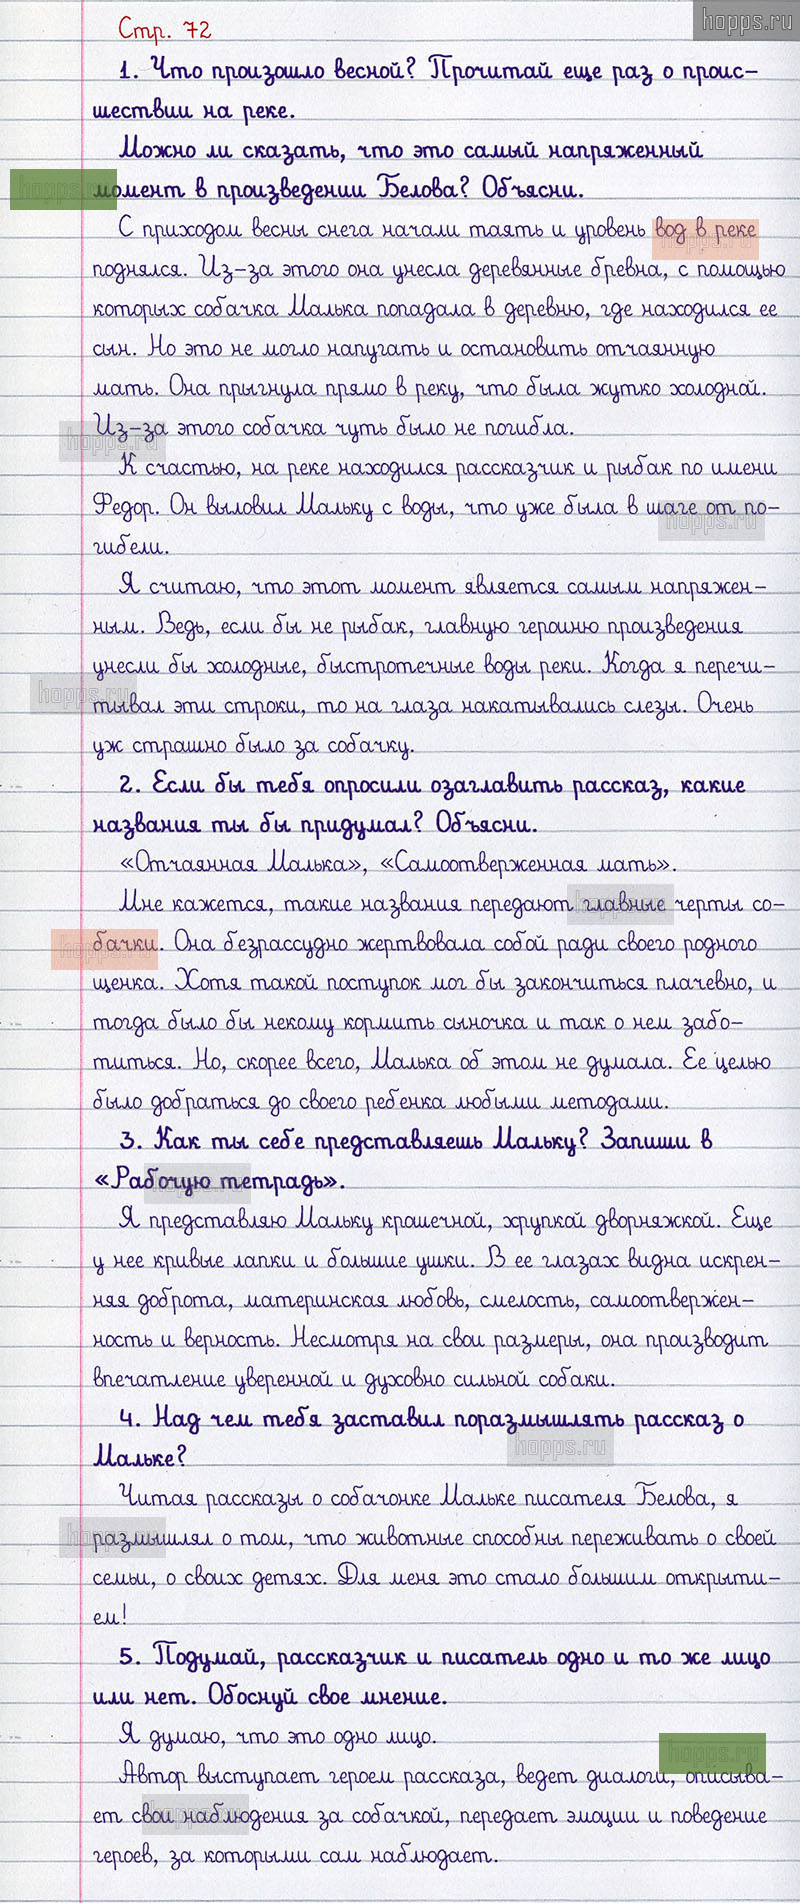 hopps.ru
Стр. 72
1. Что произошло весной? Прочитай еще раз о проис-
шествии на реке.
Можно ли сказать, что это самый напряженный
hopps.ru
момент в произведении Белова? Объясни.
С приходом весны снега начали таять и уровень вод в реке
hopps.ru
поднялся. Из-за этого она унесла деревянные бревна, с помощью
которых собачка Малька попадала в деревню, где находился ее
сын. Но это не могло напугать и остановить отчаянную
мать. Она прыгнула прямо в реку, что была жутко холодной.
Из-за этого собачка чуть было не погибла.
hopps.ru
К счастью, на реке находился рассказчик и рыбак по имени
Федор. Он выловил Мальку с воды, что уже была в шаге от по-
hopps.ru
гибели.
Я считаю, что этот момент является самым напряжен-
ным. Ведь, если бы не рыбак, главную героиню произведения
унесли бы холодные, быстротечные воды реки. Когда я перечи-
hopps.ru
тывал эти строки, то на глаза накатывались слезы. Очень
уж страшно было за собачку.
2. Если бы тебя опросили озаглавить рассказ, какие
названия ты бы придумал? Объясни.
«Отчаянная Малька», «Самоотверженная мать».
Мне кажется, такие названия передают главные черты со-
hopps.ru
бачки. Она безрассудно жертвовала собой ради своего родного
hopps.ru
щенка. Хотя такой поступок мог бы закончиться плачевно, и
тогда было бы некому кормить сыночка и так о нем забо-
титься. Но, скорее всего, Малька об этом не думала. Ее целью
было добраться до своего ребенка любыми методами.
3. Как ты себе представляешь Мальку? Запиши в
«Рабочую тетрадь».
hopps.ru
Я представляю Мальку крошечной, хрупкой дворняжкой. Еще
у нее кривые лапки и большие ушки. В ее глазах видна искрен-
няя доброта, материнская любовь, смелость, самоотвержен-
ность и верность. Несмотря на свои размеры, она производит
впечатление уверенной и духовно сильной собаки.
4. Над чем тебя заставил поразмышлять рассказ о
Мальке?
hopps.ru
Читая рассказы о собачонке Мальке писателя Белова, я
размышлял о том, что животные способны переживать о своей
hopps.ru
семьи, о своих детях. Для меня это стало большим открыти-
ем!
5. Подумай, рассказчик и писатель одно и то же лицо
или нет. Обоснуй свое мнение.
Я думаю, что это одно лицо.
hopps.ru
Автор выступает героем рассказа, ведет диалоги, описыва-
ет свои наблюдения за собачкой, передает эмоции и поведение
hopps.ru
героев, за которыми сам наблюдает.